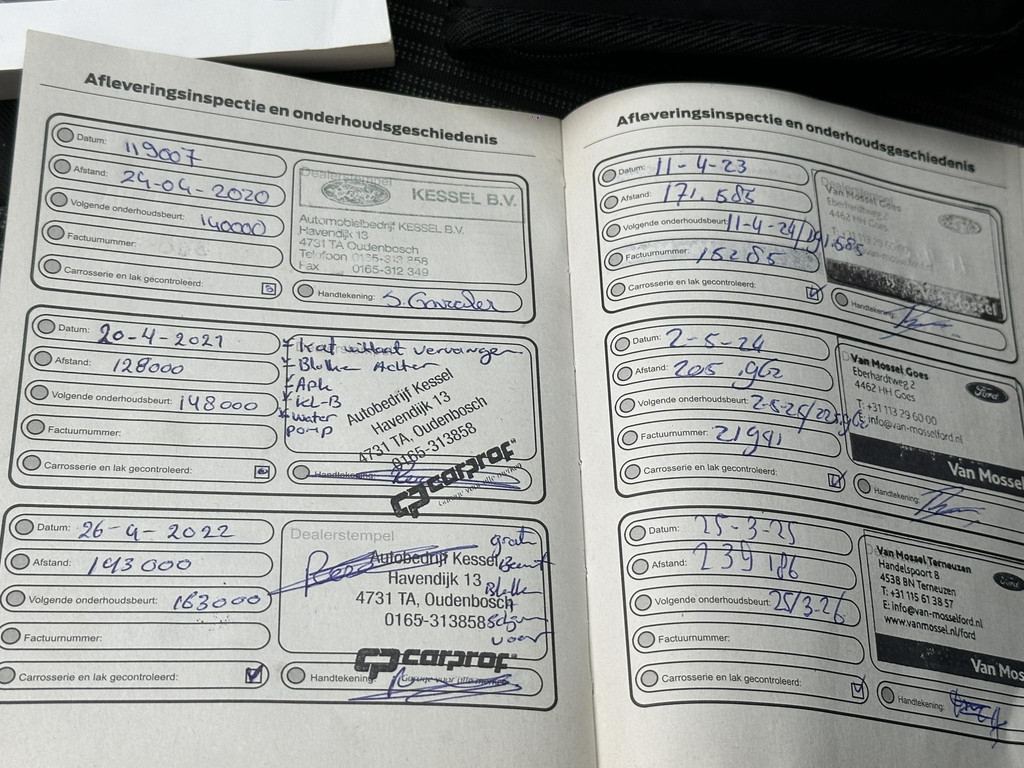 Afleveringsinspectie en onderhoudsgeschiedenis
Datum: 119007
Afstand: 24-04-2020
Volgende onderhoudsbeurt: 140000
Factuurnummer:
Carrosserie en lak gecontroleerd:
Dealerstempel
KESSEL B.V.
Automobielbedrijf KESSEL B.V.
Havendijk 13
4731 TA Oudenbosch
Telefoon 0165-313 858
Fax 0165-312 349
Handtekening:
Datum: 20-4-2021
Afstand: 128000
Volgende onderhoudsbeurt: 148000
Factuurnummer:
Carrosserie en lak gecontroleerd:
* Kat uitlaat vervangen
* Blokken Achter
* Apk
* KL-B
* water
pomp
Autobedrijf Kessel
Havendijk 13
4731 TA, Oudenbosch
0165-313858
Handtekening:
carprof
Garage voor alle merken
Datum: 26-4-2022
Afstand: 143000
Volgende onderhoudsbeurt: 163000
Factuurnummer:
Carrosserie en lak gecontroleerd:
Dealerstempel
Autobedrijf Kessel
Havendijk 13
4731 TA, Oudenbosch
0165-313858
grote
Beurt
voor
carprof
Garage voor alle merken
Handtekening:
Afleveringsinspectie en onderhoudsgeschiedenis
Datum: 11-4-23
Afstand: 171.585
Volgende onderhoudsbeurt: 11-4-24/191.585
Factuurnummer: 15285
Carrosserie en lak gecontroleerd:
Van Mossel Goes
Eberhardtweg 2
4462 HH Goes
Handtekening:
Datum: 2-5-24
Afstand: 205.962
Volgende onderhoudsbeurt: 2-5-25/225.962
Factuurnummer: 21991
Carrosserie en lak gecontroleerd:
Van Mossel Goes
Eberhardtweg 2
4462 HH Goes
T: +31 113 29 60 00
E: info@van-mosselford.nl
Ford
Van Mossel
Handtekening:
Datum: 25-3-25
Afstand: 239186
Volgende onderhoudsbeurt: 25/3-26
Factuurnummer:
Carrosserie en lak gecontroleerd:
Van Mossel Terneuzen
Handelspoort 8
4538 BN Terneuzen
T: +31 115 61 38 57
E: info@van-mosselford.nl
www.vanmossel.nl/ford
Van Mos
Handtekening: